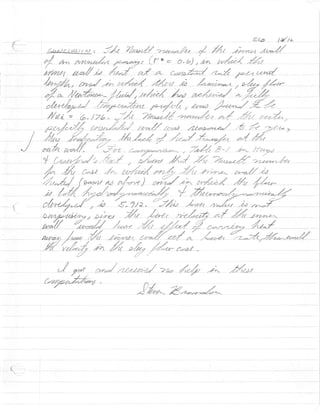 CONCLUSION: The Nusselt number of the inner wall
of an annular passage (r* = 0.6), in which the
inner wall is heat at a constant rate per unit
length, and in which there is laminar, slug flow
of a Newtonian fluid, which has achieved a fully
developed temperature profile, was found to be
= 6.176. The Nusselt number at the outer,
perfectly insulated wall was reasoned to be zero,
thus indicating the lack of heat transfer at the
outer wall. For comparison, Table 8-1 in Kays
& Crawford's text, shows that the Nusselt number
for the case in which only the inner wall is
heated (same as above) and in which the flow
is both hydrodynamically & thermally
developed, is 5.912. This lower value is not
surprising, since the lower velocity at the inner
wall would have the effect of carrying heat
away from the inner wall at a lower rate, than would
the velocity in the slug flow case.
I gave and received no help in these
computations.
Steven